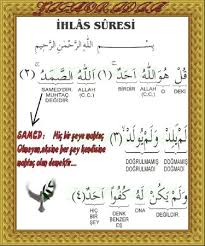 İHLÂS SÛRESİ
بِسْمِ اللَّهِ الرَّحْمَنِ الرَّحِيمِ
قُلْ هُوَ اللَّهُ أَحَدٌ (١) اَللَّهُ الصَّمَدُ (٢)
SAMED'DİR. ALLAH ALLAH O DEKİ
MUHTAÇ (C.C.) (C.C.)
DEĞİLDİR.
لَمْ يَلِدْ وَلَمْ يُولَدْ (٣)
DOĞRULMAMIŞ DOĞMAMIŞ
DOĞRULMADI DOĞMADI
SAMED: Hiç bir şeye muhtaç
Olmayan, aksine her şey kendisine
muhtaç olan demektir...
وَلَمْ يَكُنْ لَهُ كُفُوًا أَحَدٌ (٤)
HİÇ DENK ONA DEĞİLDİR.
BİR BENZER
ŞEY EŞ